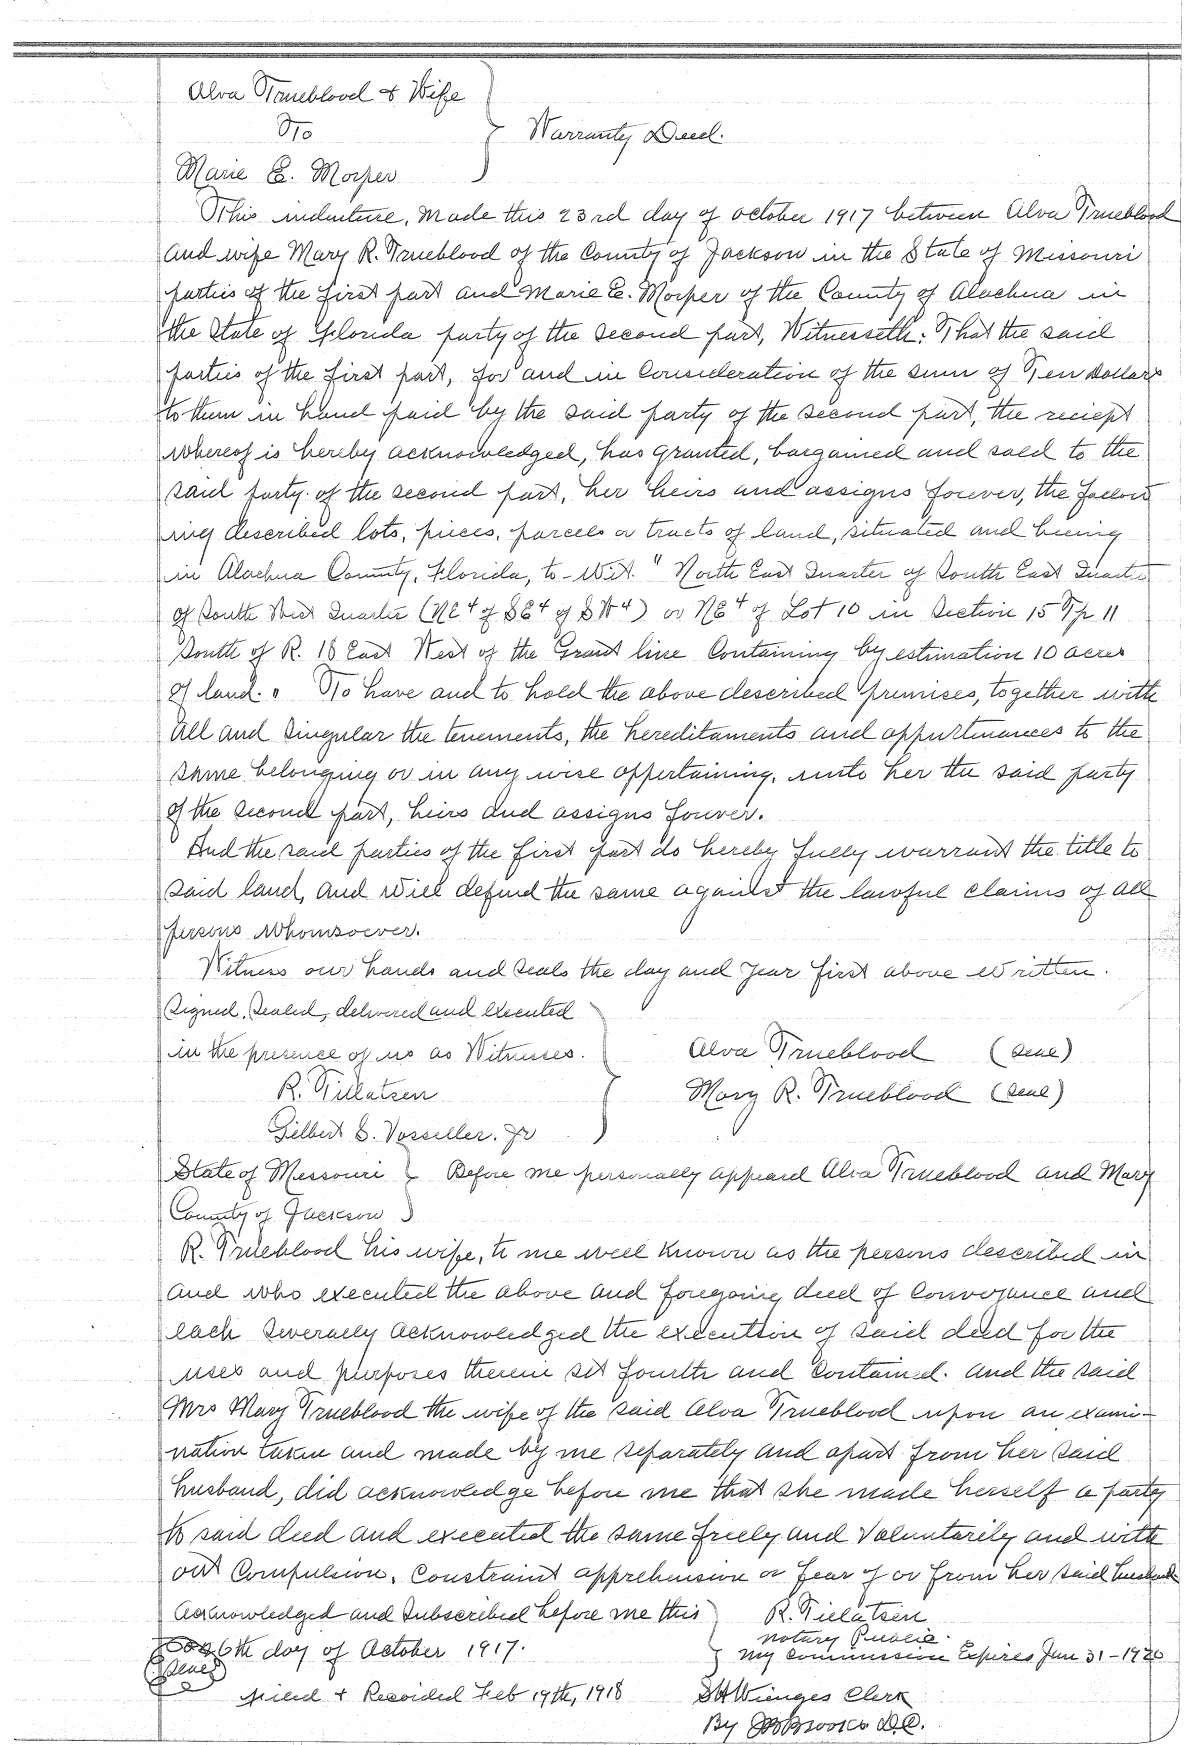 Alva Trueblood & Wife
To
Warranty Deed.
Marie E. Morper
This indenture, Made this 23rd day of October 1917 between Alva Trueblood
and wife Mary R. Trueblood of the County of Jackson in the State of Missouri
parties of the first part and Marie E. Morper of the County of Alachua in
the State of Florida party of the second part, Witnesseth: That the said
parties of the first part, for and in Consideration of the sum of Ten Dollars
to them in hand paid by the said party of the second part, the reciept
whereof is hereby acknowledged, has granted, bargained and sold to the
said party of the second part, her heirs and assigns forever, the follow
ing described lots, pieces, parcels or tracts of land, situated and being
in Alachua County, Florida, to-wit. "North East Quarter of South East Quarter
of South West Quarter (NE4 of SE4 of SW4) or NE4 of Lot 10 in Section 15 Tp 11
South of R. 18 East West of the Grant line Containing by estimation 10 acres
of land." To have and to hold the above described premises, together with
all and singular the tenements, the hereditaments and appurtinances to the
same belonging or in any wise appertaining, unto her the said party
of the second part, heirs and assigns forever.
And the said parties of the first part do hereby fully warrant the title to
said land, and will defend the same against the lawful claims of all
persons whomsoever.
Witness our hands and seals the day and year first above written.
Signed, Sealed, delivered and executed
in the presence of us as Witnesses. Alva Trueblood (Seal)
R. Tillatsen Mary R. Trueblood (Seal)
Gilbert S. Vosseller. Jr
State of Missouri Before me personally appeared Alva Trueblood and Mary
County of Jackson
R. Trueblood his wife, to me well known as the persons described in
and who executed the above and foregoing deed of Conveyance and
each severally acknowledged the execution of said deed for the
uses and purposes therein set fourth and Contained. And the said
Mrs Mary Trueblood the wife of the said Alva Trueblood upon an exami-
nation taken and made by me separately and apart from her said
husband, did acknowledge before me that she made herself a party
to said deed and executed the same freely and voluntarily and with
out Compulsion, Constraint apprehension or fear of or from her said husband
Acknowledged and Subscribed before me this R. Tillatsen
Notary Public.
26th day of October 1917. My Commission Expires Jan 31-1920
Seal
Filed & Recorded Feb 19th, 1918 S H Wienges Clerk
By Brooks D.C.